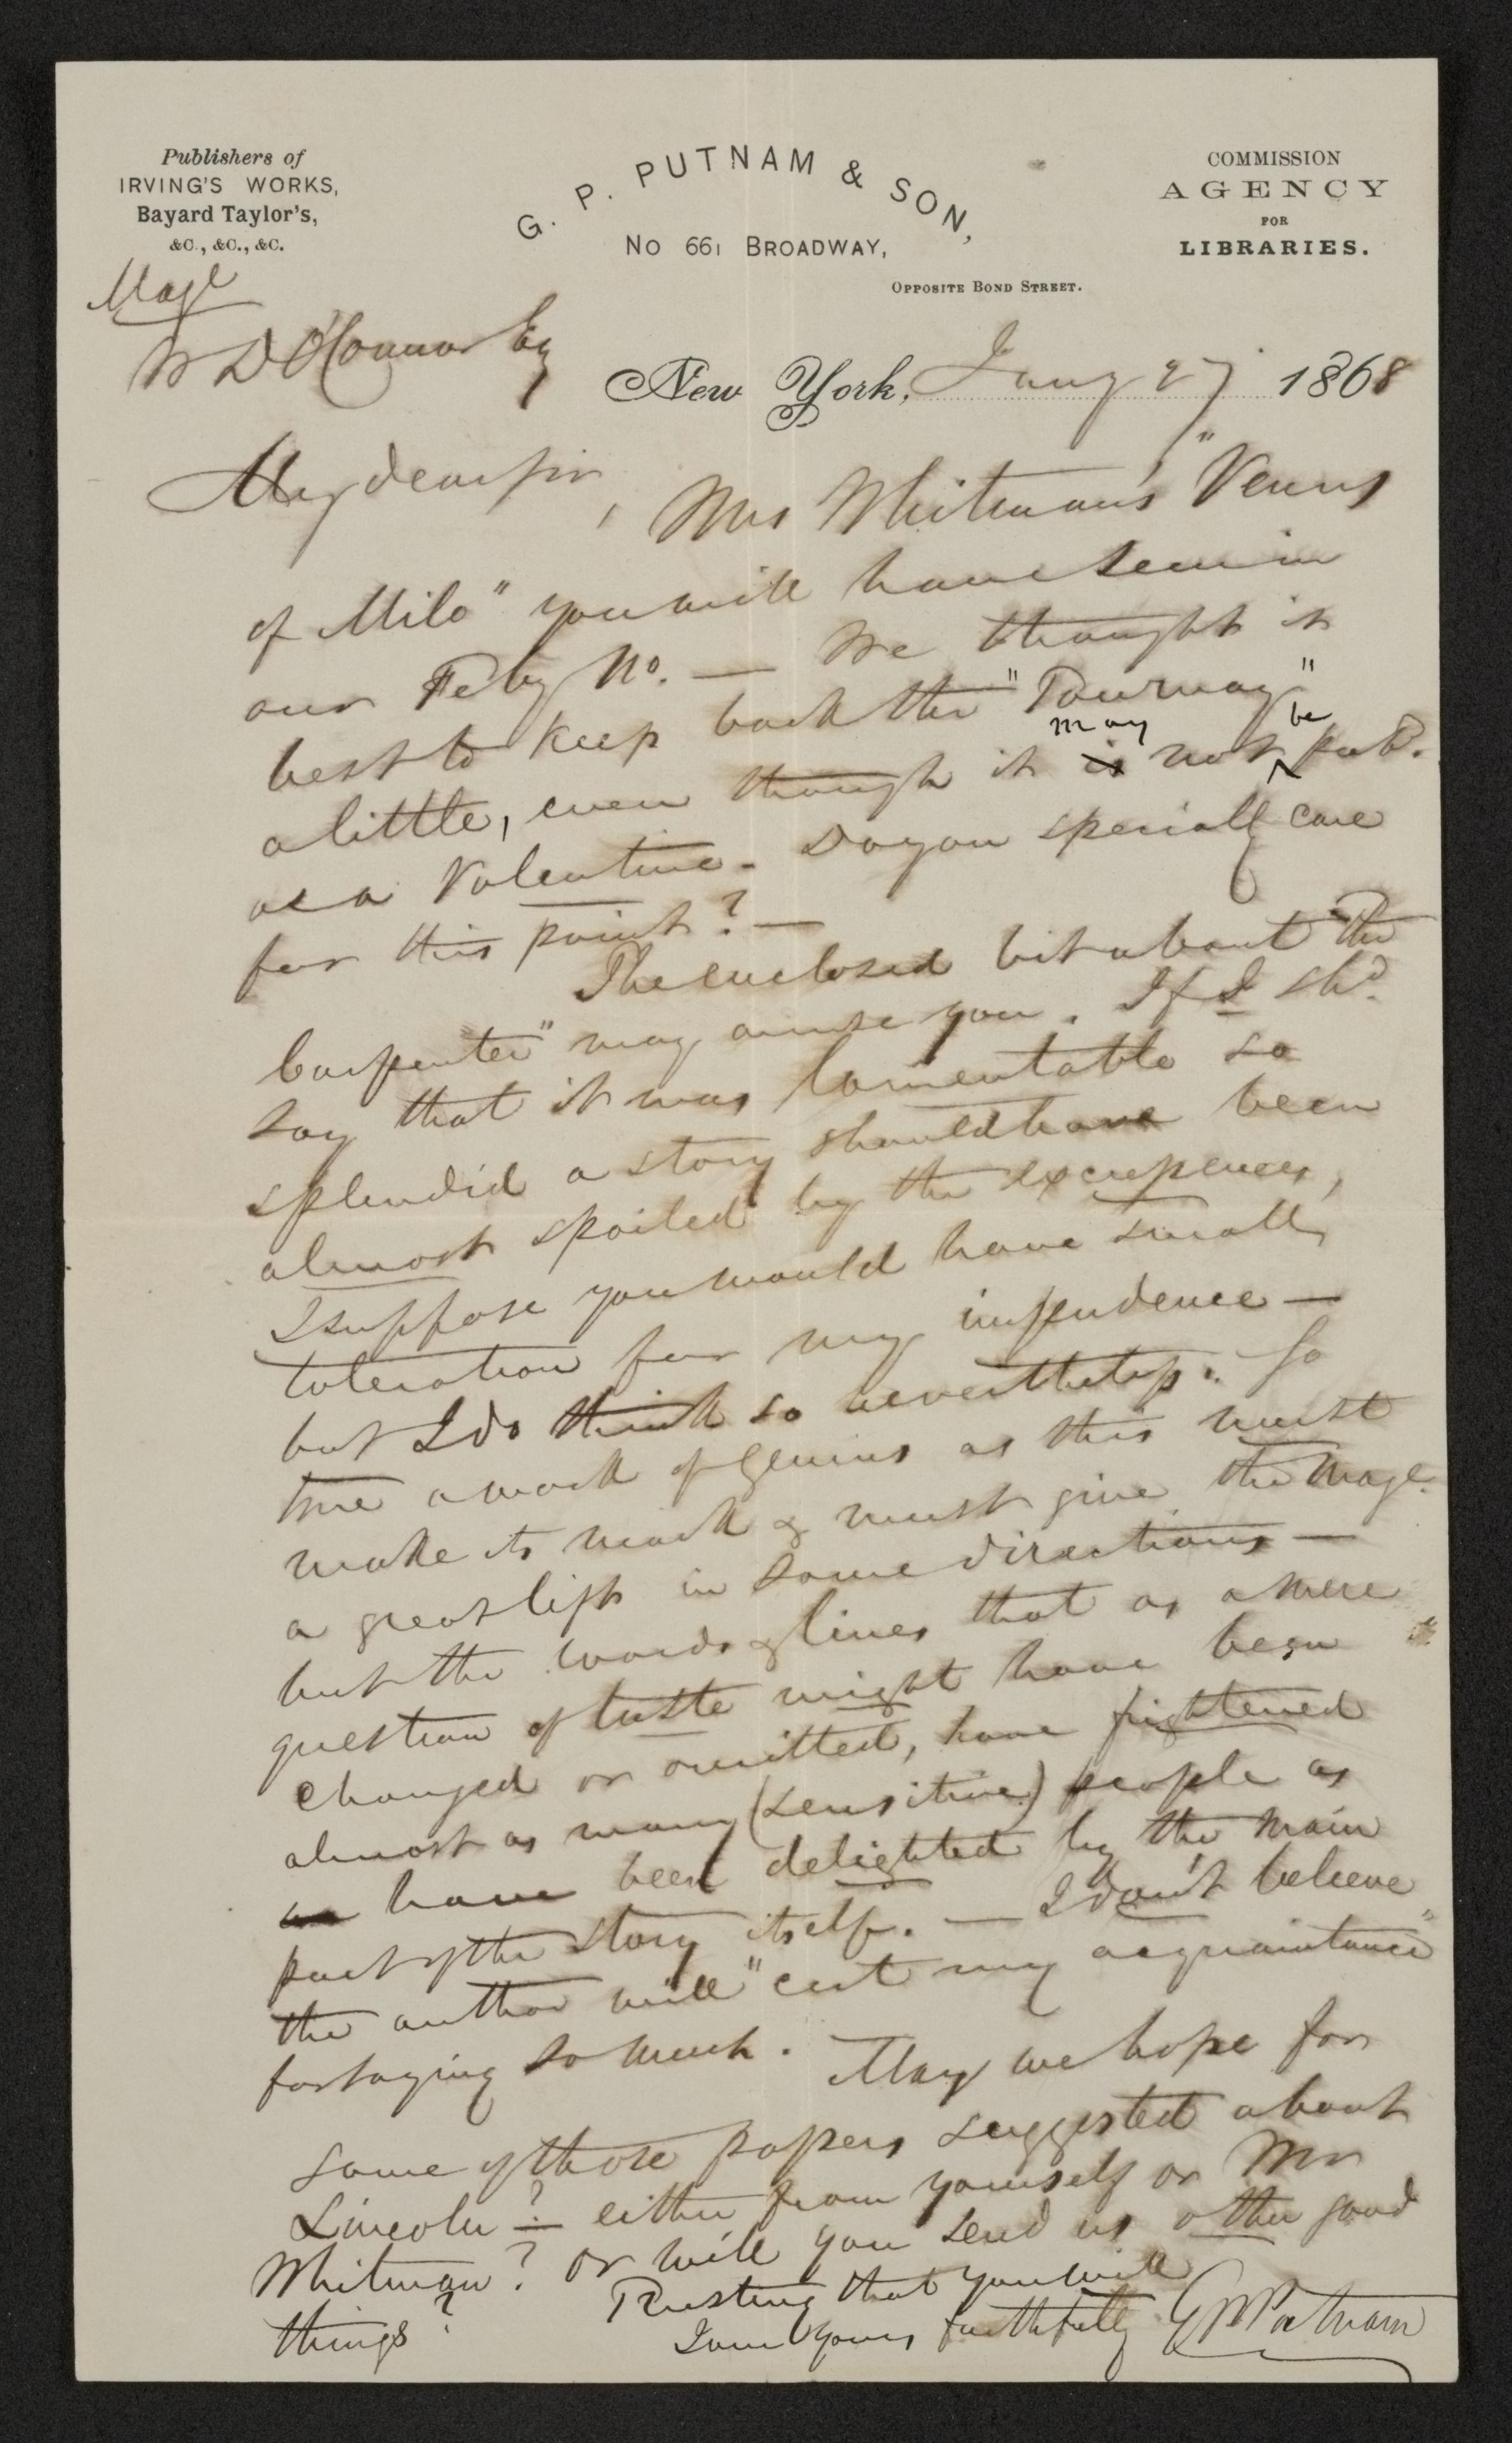 Publishers of
IRVING'S WORKS,
Bayard Taylor's,
&C., &C., &C.
G. P. PUTNAM & SON,
No 661 BROADWAY,
OPPOSITE BOND STREET.
COMMISSION
AGENCY
FOR
LIBRARIES.
Magz
W D O'Connor Esq
New York, Jany 27 1868
My dear sir,
Mrs Whitman's "Venus
of Milo" you will have seen in
our Feby No. — We thought it
best to keep back the "Tourmay"
a little, even though it is may not be pub.
as a Valentine. Do you specially care
for this point? —
The enclosed bit about "The
Carpenter" may amuse you. If I shd.
say that it was lamentable so
splendid a story should have been
almost spoiled by the excrescences,
I suppose you would have small
toleration for my impudence —
but I do think so nevertheless. So
true a work of genius as this must
make its mark & must give the Mag.
a great lift in some directions —
but the words & lines that as a mere
question of taste might have been
changed or omitted, have frightened
almost as many (sensitive) people as
have been delighted by the main
part of the story itself. — I don't believe
the author will "cut my acquaintance"
for saying so much. May we hope for
some of those papers suggested about
Lincoln? — either from yourself or Mr
Whitman? or will you send us other good
things?
Trusting that you will
I am Yours faithfully G P Putnam